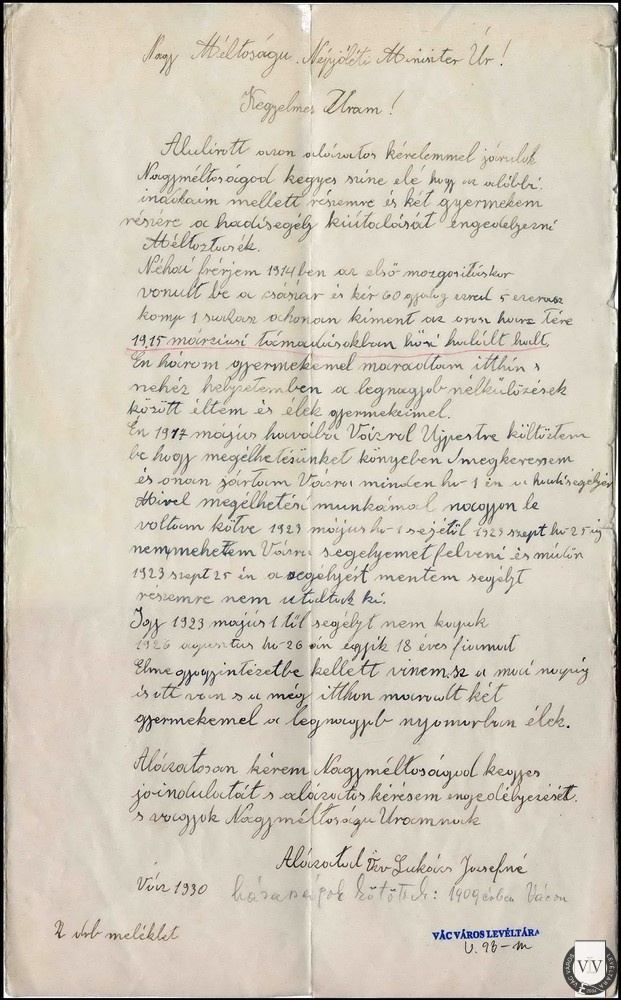 Nagy Méltóságu Népjóléti Miniszter Úr!
Kegyelmes Uram!
Alulírott azon alázatos kérelemmel járulok
Nagyméltóságod kegyes színe elé hogy az alóbbi
indokaim mellett részemre és két gyermekem
részére a hadisegély kiútalását engedélyezni
Méltoztasék.
Néhai férjem 1914 ben az első mozgositáskor
vonult be a császár és kir 60 gyalog ezred 5
komp 1 szakasz ahonan kiment az orosz harz tére
1915 márziusi támadásokban hősi halált halt.
Én három gyermekemel maradtam itthon s
nehéz helyzetemben a legnagyob nélkülözések
között éltem és élek gyermekeimel.
Én 1917 május havába Vázrol Ujpestre költöztem
be hogy megélhetésünket könyeben megkeressem
és onan jártam Vázra minden hó 1 én a hadisegélyér
Mivel megélhetési munkámal nagyon le
voltam kötve 1923 május hó 1 sejétöl 1923 szept hó 25 ig
nemmehetem Vázra segélyemet felveni és midőn
1923 szept 25 én a segélyért mentem segélyt
részemre nem utaltak ki.
Igy 1923 május 1 töl segélyt nem kapok
1926 agusztus hó 26 án egyik 18 éves fiamat
Elme gyogyintézetbe kellett vinem sz a mai napig
is ott van s a még itthon maradt két
gyermekemel a legnagyob nyomorban élek.
Alázatosan kérem Nagyméltóságod kegyes
jóindulatát s alázatos kérésem engedélyezését.
s vagyok Nagyméltóságu Uramnak
Alázatal Özv Lukáczs Jozsefné
Váz 1930 házaságok kötött : 1909 évben Vácon
2 drb meléklet
VÁC VÁROS LEVÉLTÁRA
V. 93-m
VÁC VÁROS LEVÉLTÁRA
VVL